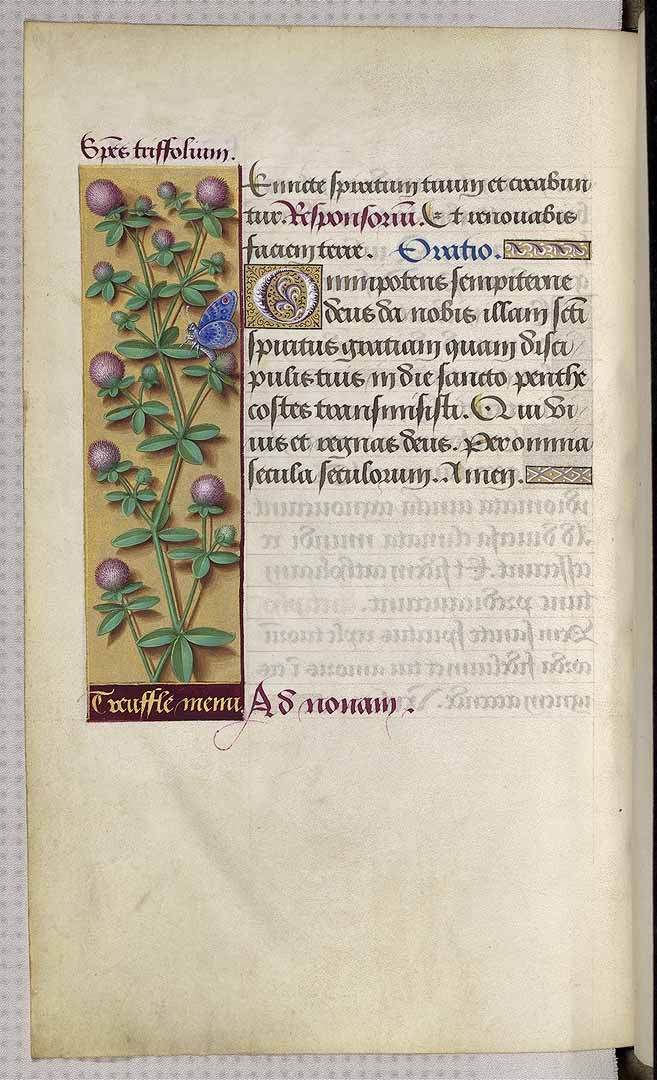 Sp̄es triffolium.
Emitte spiritum tuum et creabun
tur. Responsoriū. Et renovabis
faciem terre. Oratio.
Omnipotens sempiterne
deus da nobis illam sc̄ti
spiritus gratiam quam disci
pulis tuis in die sancto penthe
costes transmisisti. Qui vi
uis et regnas deus. Per omnia
secula seculorum. Amen.
Treufflē menu.
Ad nonam.